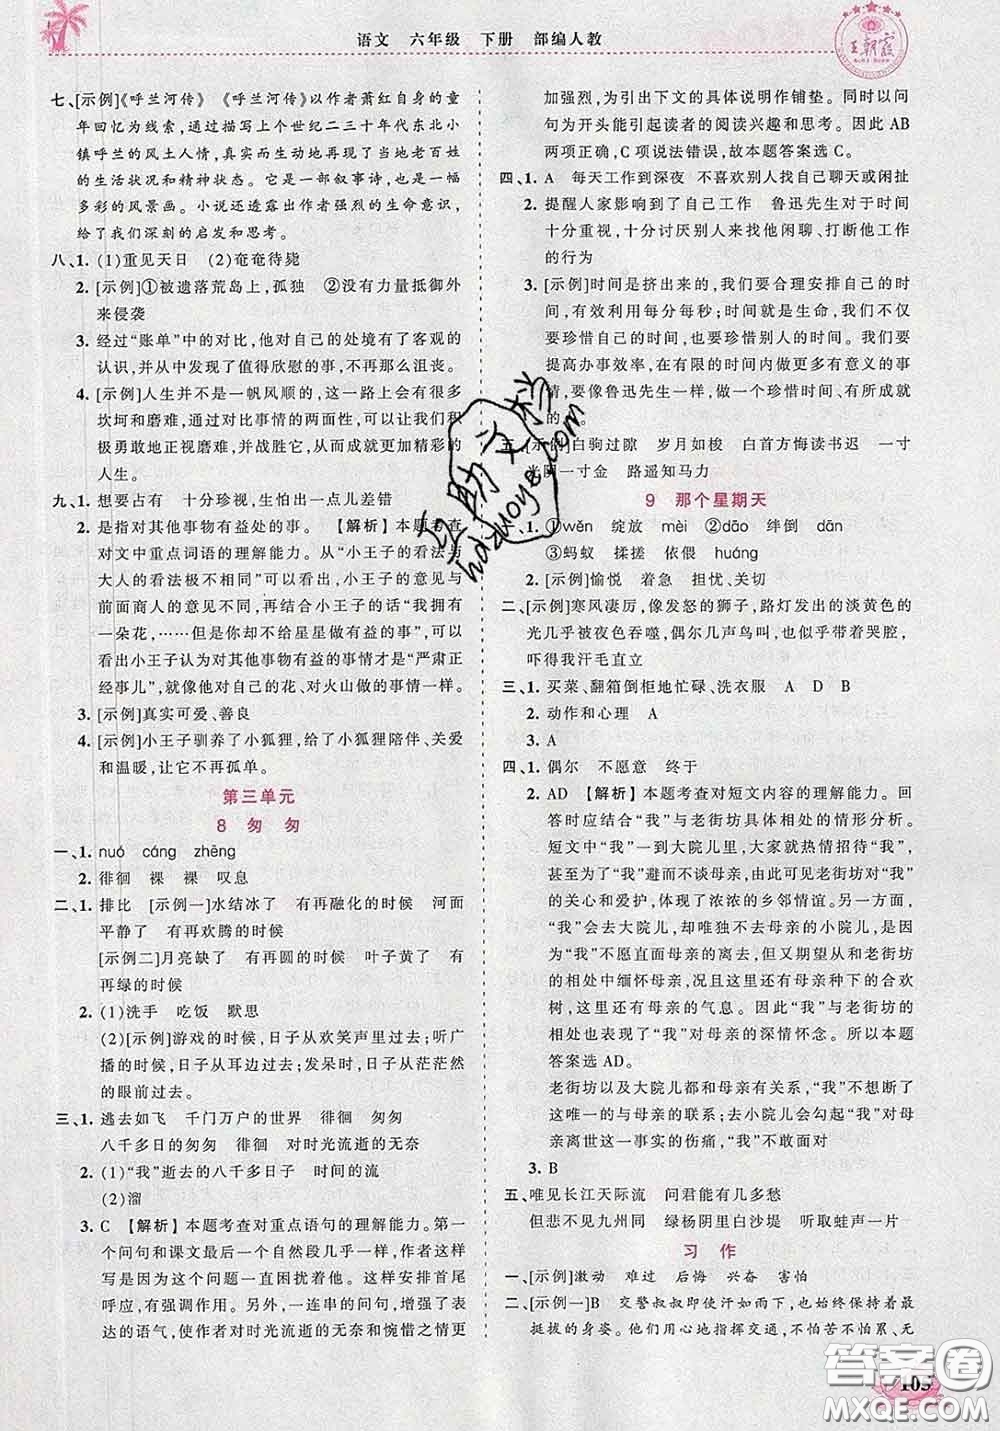 语文 六年级 下册 部编人教
王朝霞
七、[示例]《呼兰河传》 《呼兰河传》以作者萧红自身的童
年回忆为线索,通过描写上个世纪二三十年代东北小
镇呼兰的风土人情,真实而生动地再现了当地老百姓
的生活状况和精神状态。它是一部叙事诗,也是一幅
多彩的风景画。小说还透露出作者强烈的生命意识,
给了我们深刻的启发和思考。
八、1. (1)重见天日 (2)奄奄待毙
2. [示例]①被遗落荒岛上,孤独 ②没有力量抵御外
来侵袭
3. 经过“账单”中的对比,他对自己的处境有了客观的
认识,并从中发现了值得欣慰的事,不再那么沮丧。
4. [示例]人生并不是一帆风顺的,这一路上会有很多
坎坷和磨难,通过对比事情的两面性,可以让我们积
极勇敢地正视磨难,并战胜它,从而拥有更加精彩的
人生。
九、1. 想要占有 十分珍视,生怕出一点儿差错
2. 是指对其他事物有益处的事。 【解析】本题考查
对文中重点词语的理解能力。从“小王子的看法与
大人的看法极不相同”可以看出小王子的意见与
前面商人的意见不同,再结合小王子的话“我拥有
一朵花,……但是你却不给星星做有益的事”,可以
看出小王子认为对其他事物有益的事情才是“严肃正
经事儿”,这就像他对自己的花、对火山做的事情一样。
3. [示例]真实可爱、善良
4. [示例]小王子驯养了小狐狸,给了小狐狸陪伴、关爱
和温暖,让它不再孤单。
第三单元
8 匆 匆
一、1. nuó cáng zhēng
2. 徘徊 裸 裸 叹息
二、1. 排比 [示例一]水结冰了 有再融化的时候 河面
平静了 有再欢腾的时候
[示例二]月亮缺了 有再圆的时候 叶子黄了 有
再绿的时候
2. (1)洗手 吃饭 默思
(2)[示例]游戏的时候,日子从欢笑声里过去;听广
播的时候,日子从耳边过去;发呆时,便从茫茫然
的眼前过去。
三、1. 逃去如飞 千门万户的世界 徘徊 匆匆
八千多日的匆匆 徘徊 对时光流逝的无奈
2. (1)“我”逝去的八千多日子 时间的流
(2)溜
3. C 【解析】本题考查对重点语句的理解能力。第一
个问句和课文最后一个自然段几乎一样,作者这样
写是因为这个问题一直困扰着他。这样安排首尾
呼应,有强调作用。另外,一连串的问句,增强了表
达的语气,使作者对时光流逝的无奈和惋惜之情更
加强烈,为引出下文的具体说明作铺垫。同时以问
句为开头能引起读者的阅读兴趣和思考。因此 AB
两项正确,C项说法错误,故本题答案选C。
四、1. A 每天工作到深夜 不喜欢别人找自己聊天或闲扯
2. 提醒人家影响到了自己工作 鲁迅先生对于时间
十分重视,十分讨厌别人来找他闲聊、打断他工作
的行为
3. [示例]时间是挤出来的,我们要合理安排自己的时
间,有效利用每分每秒;时间就是生命,我们不仅
要珍惜自己的时间,也要珍惜别人的时间。我们要
提高办事效率,在有限的时间内做更多有意义的事
情,要像鲁迅先生一样,做一个珍惜时间、有所成就
五、[示例]白驹过隙 岁月如梭 白首方悔读书迟 一寸
光阴一寸金 路遥知马力
9 那个星期天
一、1. ①wěn 绽放 mèi ②dāo 绊倒 dān
③蚂蚁 揉搓 依偎 huáng
2. [示例]愉悦 着急 担忧、关切
二、[示例]寒风凄厉,像发怒的狮子,路灯发出的淡黄色的
光几乎被夜吞噬,偶尔几声鸟叫,也似乎带着哭腔,
吓得我汗毛直立
三、1. 买菜、翻箱倒柜地忙碌、洗衣服 A D B
2. 动作和心理 A
3. A
四、1. 偶尔 不愿意 终于
2. AD 【解析】本题考查对短文内容的理解能力。回
答时应结合“我”与老街坊具体相处的情形分析。
短文中“我”一到大院儿里,大家就热情招待“我”
们,他们对“我”避而不谈母亲,可以看出老街坊对“我”
的关心和爱护,体现了浓浓的乡邻情谊。另一方面,
“我”去大院儿,却唯独不去母亲的小院儿,是因为
“我”不愿直面母亲的离去,但又期望从和老街坊
的相处中缅怀母亲,况且这里还有母亲种下的合欢
树,这里还有母亲的气息。因此“我”与老街坊的
相处也表现了“我”对母亲的深情怀念。所以本题
答案选 AD。
老街坊以及大院儿都和母亲有关系,“我”不想断了
这唯一的与母亲的联系;去小院儿会勾起“我”对母
亲离世这一事实的伤痛,“我”不敢面对
3. B
五、唯见长江天际流 问君能有几多愁
但悲不见九州同 绿杨阴里白沙堤 听取蛙声一片
习 作
一、[示例]激动 难过 后悔 兴奋 害怕
二、[示例一]B 交警叔叔即使汗如雨下,也始终保持着最
挺拔的身姿。他们用心地指挥交通,不怕苦不怕累、无
105
答案圈
MXQE.COM